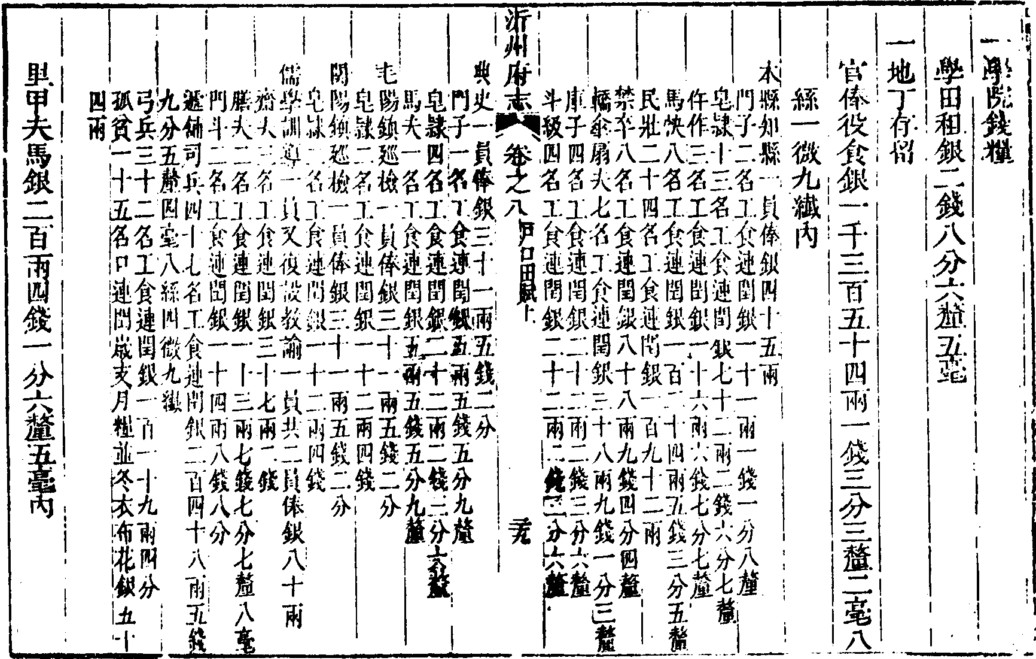 一學院錢糧
學田租銀二錢八分六釐五毫
一地丁存留
官俸役食銀一千三百五十四兩一錢三分三釐二毫八
絲一微九纖內
本縣知縣一員俸銀四十五兩
門子二名工食連閏銀一十一兩一錢一分八釐
皂隸十三名工食連閏銀七十二兩二錢六分七釐
仵作三名工食連閏銀一十六兩六錢七分七釐
馬快八名工食連閏銀一百二十四兩五錢三分五釐
民壯二十四名工食連閏銀一百九十二兩
禁卒八名工食連閏銀八十八兩九錢四分四釐
轎傘扇夫七名工食連閏銀三十八兩九錢一分三釐
庫子四名工食連閏銀二十二兩二錢三分六釐
斗級四名工食連閏銀二十二兩二錢三分六釐
沂州府志
卷之八
戶口田賦上
三九
典史一員俸銀三十一兩五錢二分
門子一名工食連閏銀五兩五錢五分九釐
皂隸四名工食連閏銀二十二兩二錢三分六釐
馬夫一名工食連閏銀五兩五錢五分九釐
毛陽鎮巡檢一員俸銀三十一兩五錢二分
皂隸二名工食連閏銀一十二兩四錢
關陽鎮巡檢一員俸銀三十一兩五錢二分
皂隸二名工食連閏銀一十二兩四錢
儒學訓導一員又復設教諭一員共二員俸銀八十兩
齋夫三名工食連閏銀三十七兩二錢
膳夫二名工食連閏銀一十三兩七錢七分七釐八毫
門斗二名工食連閏銀一十四兩八錢八分
遞鋪司兵四十七名工食連閏銀二百四十八兩五錢
九分五釐四毫八絲四微九纖
弓兵三十二名工食連閏銀一百一十九兩四分
孤貧一十五名口連閏歲支月糧並冬衣布花銀五十
四兩
里甲夫馬銀二百兩四錢一分六釐五毫內